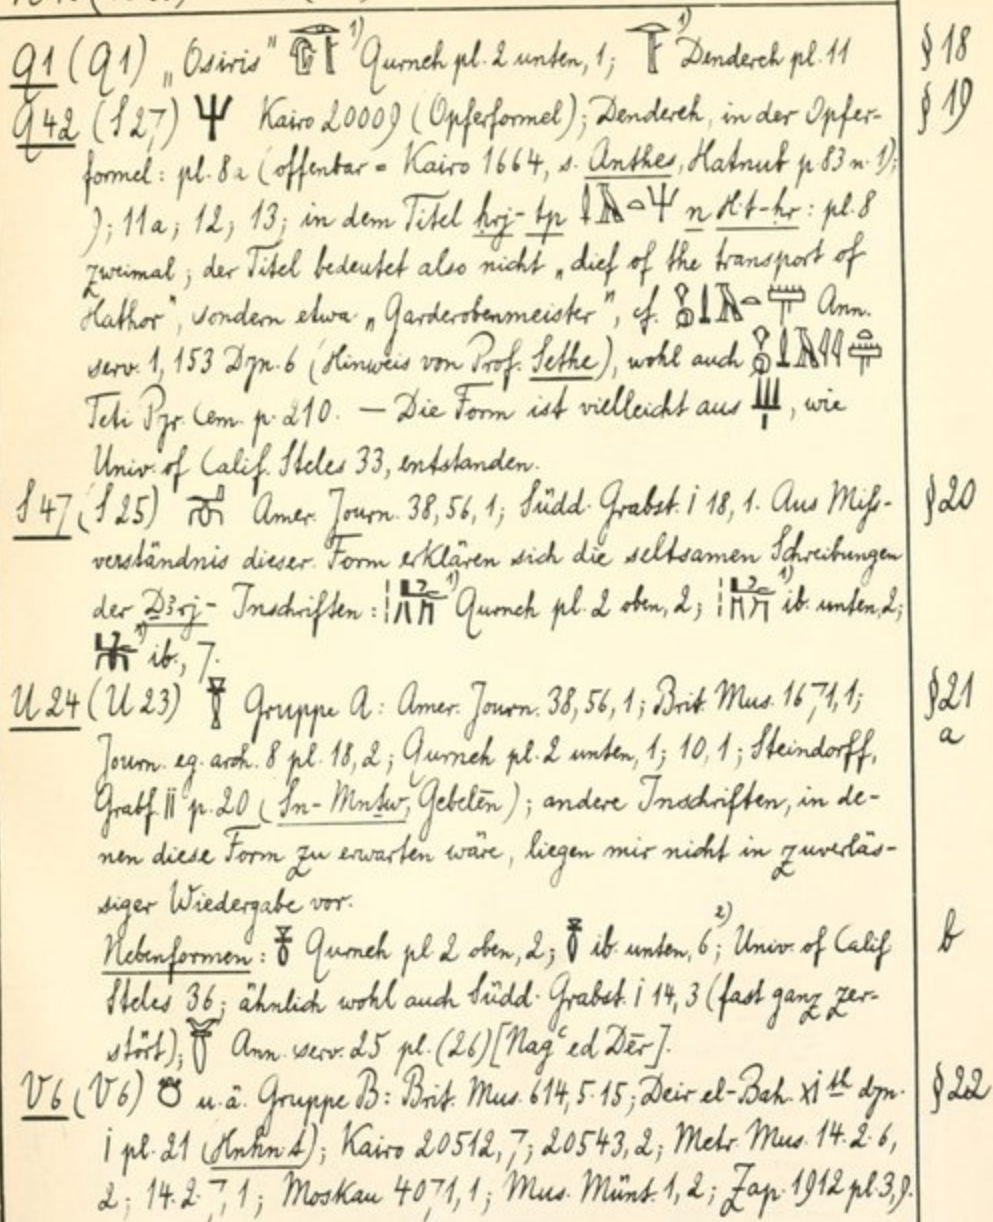 Q1 (Q1) „Osiris" 𓊨 ¹⁾ Qurneh pl. 2 unten, 1; ¹⁾ Dendereh pl. 11 § 18
Q42 (S27) Kairo 20009 (Opferformel); Dendereh, in der Opfer- § 19
formel: pl. 8a (offenbar = Kairo 1664, s. Anthes, Hatnub p 83 n. 1);
); 11a; 12; 13; in dem Titel ḥrj-tp n Ḥt-ḥr: pl. 8
zweimal; der Titel bedeutet also nicht „chief of the transport of
Hathor", sondern etwa „Garderobenmeister", cf. Ann.
serv. 1, 153 Dyn. 6 (Hinweis von Prof. Sethe), wohl auch
Teti Pyr. Cem. p. 210. — Die Form ist vielleicht aus , wie
Univ. of Calif. Steles 33, entstanden.
S47 (S25) Amer. Journ. 38, 56, 1; Südd. Grabst. I 18, 1. Aus Miß- § 20
verständnis dieser Form erklären sich die seltsamen Schreibungen
der Ḏꜣrj- Inschriften: ¹⁾ Qurneh pl. 2 oben, 2; ¹⁾ ib. unten, 2;
¹⁾ ib., 7.
U24 (U23) Gruppe A: Amer. Journ. 38, 56, 1; Brit. Mus. 1671, 1; § 21
Journ. eg. arch. 8 pl. 18, 2; Qurneh pl. 2 unten, 1; 10, 1; Steindorff, a
Grabf. II p. 20 (In-Mnṯw, Gebelēn); andere Inschriften, in de-
nen diese Form zu erwarten wäre, liegen mir nicht in zuverläs-
siger Wiedergabe vor.
Nebenformen: Qurneh pl. 2 oben, 2; ib. unten, 6 ²⁾; Univ. of Calif b
Steles 36; ähnlich wohl auch Südd. Grabst. I 14, 3 (fast ganz zer-
stört); Ann. serv. 25 pl. (26) [Nagᶜ ed Dēr].
V6 (V6) u. ä. Gruppe B: Brit. Mus. 614, 5. 15; Deir el-Bah. XIth dyn. § 22
I pl. 21 (Ḥnhnt); Kairo 20512, 7; 20543, 2; Metr. Mus. 14. 2. 6,
2; 14. 2. 7, 1; Moskau 4071, 1; Mus. Münt. 1, 2; Zap. 1912 pl. 3, 9.